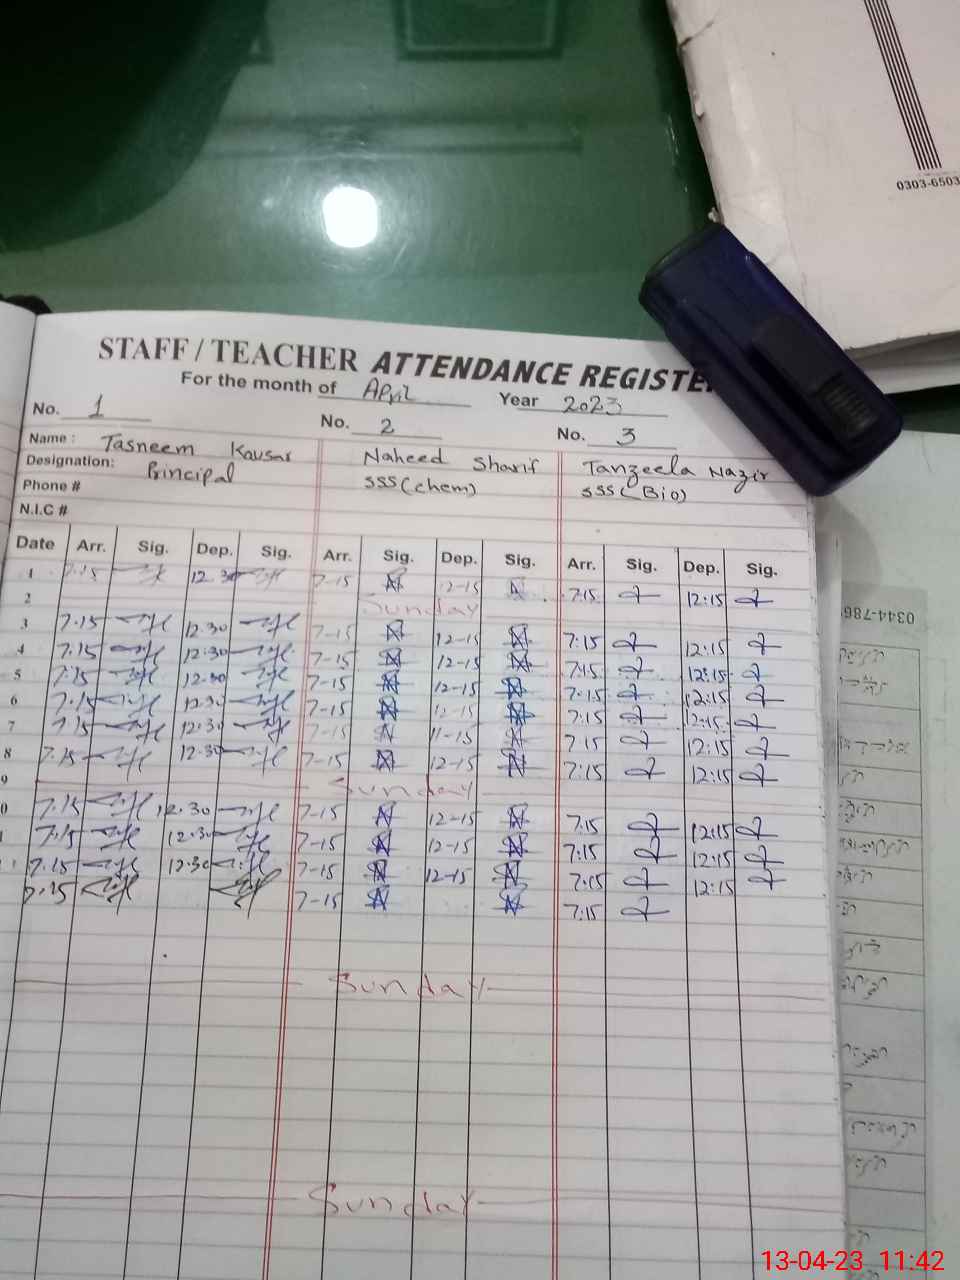 0303-6503
STAFF / TEACHER ATTENDANCE REGISTE
For the month of April Year 2023
No. 1 No. 2 No. 3
Name : Tasneem Kausar Naheed Sharif Tanzeela Nazir
Designation: Principal SSS (Chem) SSS (Bio)
Phone #
N.I.C #
Date Arr. Sig. Dep. Sig. Arr. Sig. Dep. Sig. Arr. Sig. Dep. Sig.
1 7.15 12.30 7-15 12-15 7:15 12:15
2 Sunday
3 7.15 12.30 7-15 12-15 7:15 12:15
4 7.15 12.30 7-15 12-15 7:15 12:15
5 7.15 12.30 7-15 12-15 7:15 12:15
6 7.15 12.30 7-15 12-15 7:15 12:15
7 7.15 12.30 7-15 11-15 7:15 12:15
8 7.15 12.30 7-15 12-15 7:15 12:15
9 Sunday
0 7.15 12.30 7-15 12-15 7:15 12:15
7.15 12.30 7-15 12-15 7:15 12:15
7.15 12.30 7-15 12-15 7:15 12:15
7.15 7-15 7:15
Sunday
Sunday
0344-786
13-04-23 11:42